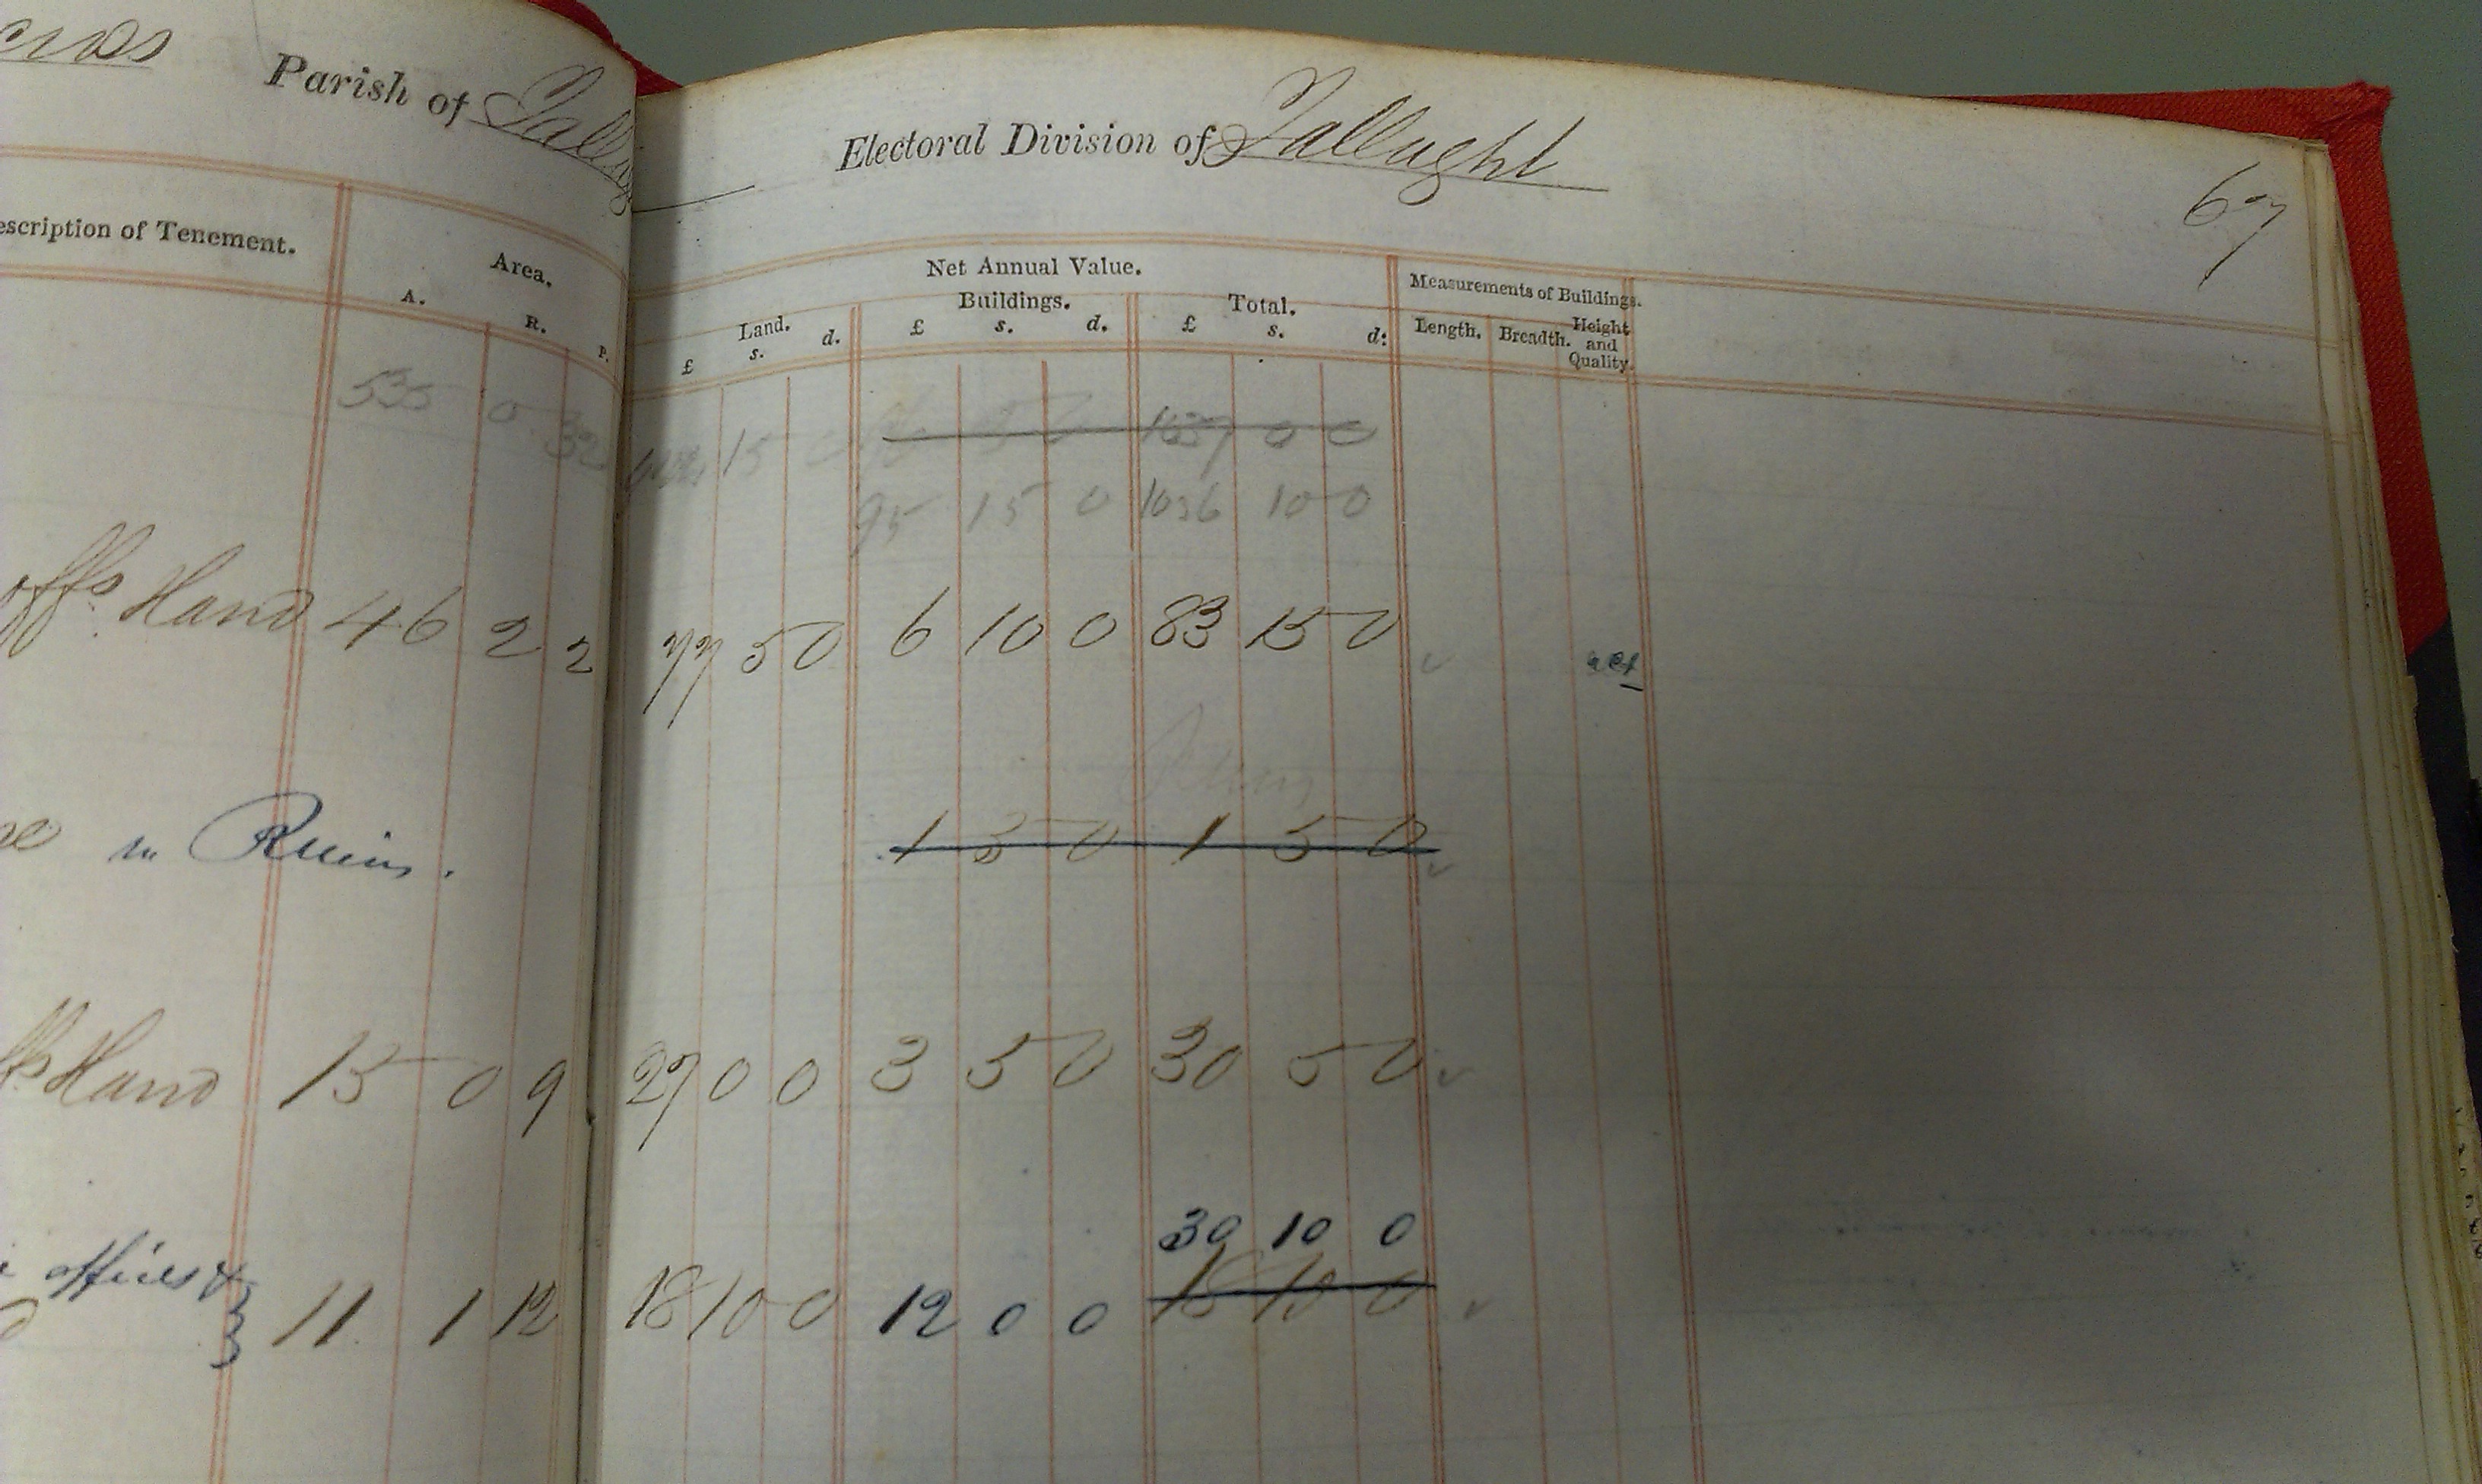 Parish of
Electoral Division of Tallaght
67
escription of Tenement. Area. Net Annual Value. Measurements of Buildings.
A. R. P. Land. Buildings. Total. Length. Breadth. Height and Quality.
£ s. d. £ s. d. £ s. d.
535 0 32 15 1037 0 0
95 15 0 1036 10 0
offs Land 46 2 2 77 5 0 6 10 0 83 15 0
Ruins
in Ruins. 1 5 0 1 5 0
Land 15 0 9 27 0 0 3 5 0 30 5 0
30 10 0
offices & 11 1 12 18 10 0 12 0 0 18 10 0